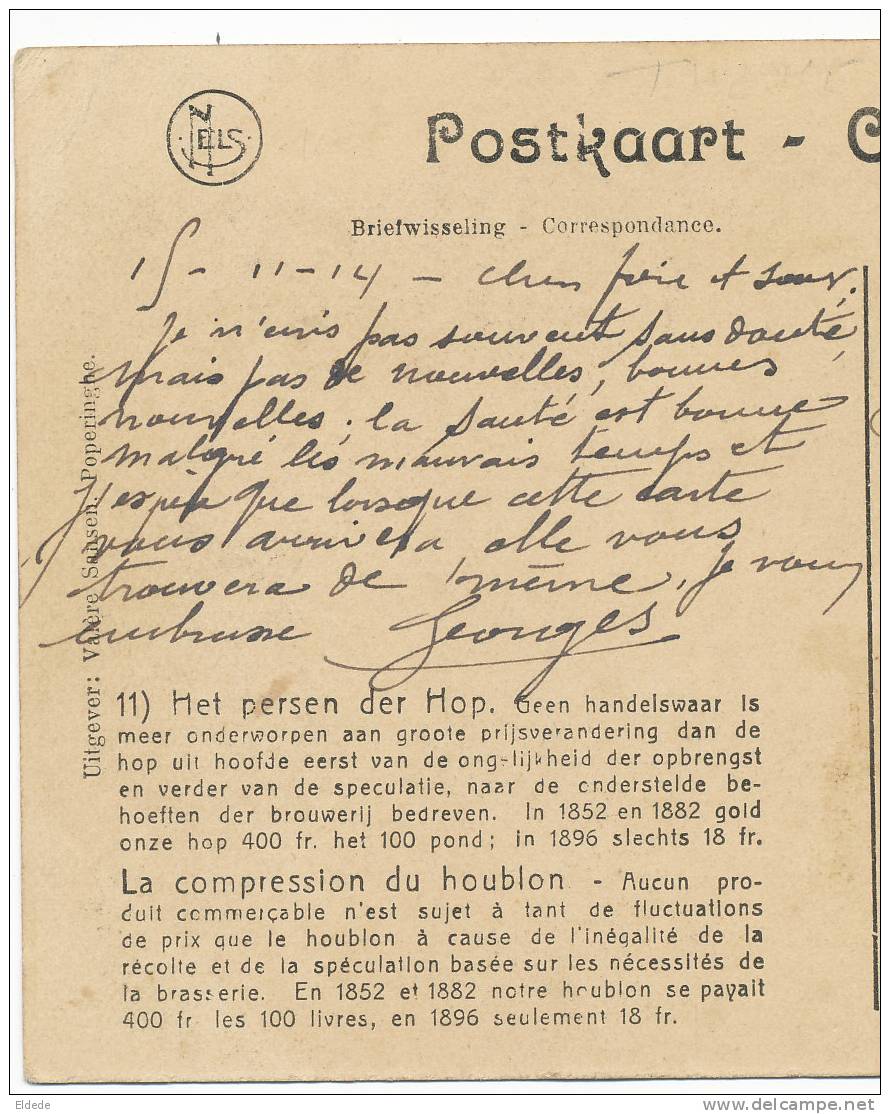 NELS
Postkaart - C
Briefwisseling - Correspondance.
15 - 11-14 - Cher frère et sœur.
Je n'écris pas souvent sans doute
mais pas de nouvelles, bonnes
nouvelles. la santé est bonne
malgré les mauvais temps et
j'espère que lorsque cette carte
vous arrivera elle vous
trouvera de même. je vous
embrasse Georges
Uitgever: Valère Sansen, Poperinghe.
11) Het persen der Hop. Geen handelswaar is
meer onderworpen aan groote prijsverandering dan de
hop uit hoofde eerst van de ongelijkheid der opbrengst
en verder van de speculatie, naar de onderstelde be-
hoeften der brouwerij bedreven. In 1852 en 1882 gold
onze hop 400 fr. het 100 pond; in 1896 slechts 18 fr.
La compression du houblon - Aucun pro-
duit commerçable n'est sujet à tant de fluctuations
de prix que le houblon à cause de l'inégalité de la
récolte et de la spéculation basée sur les nécessités de
la brasserie. En 1852 et 1882 notre houblon se payait
400 fr les 100 livres, en 1896 seulement 18 fr.
Eldede
delcampe.net